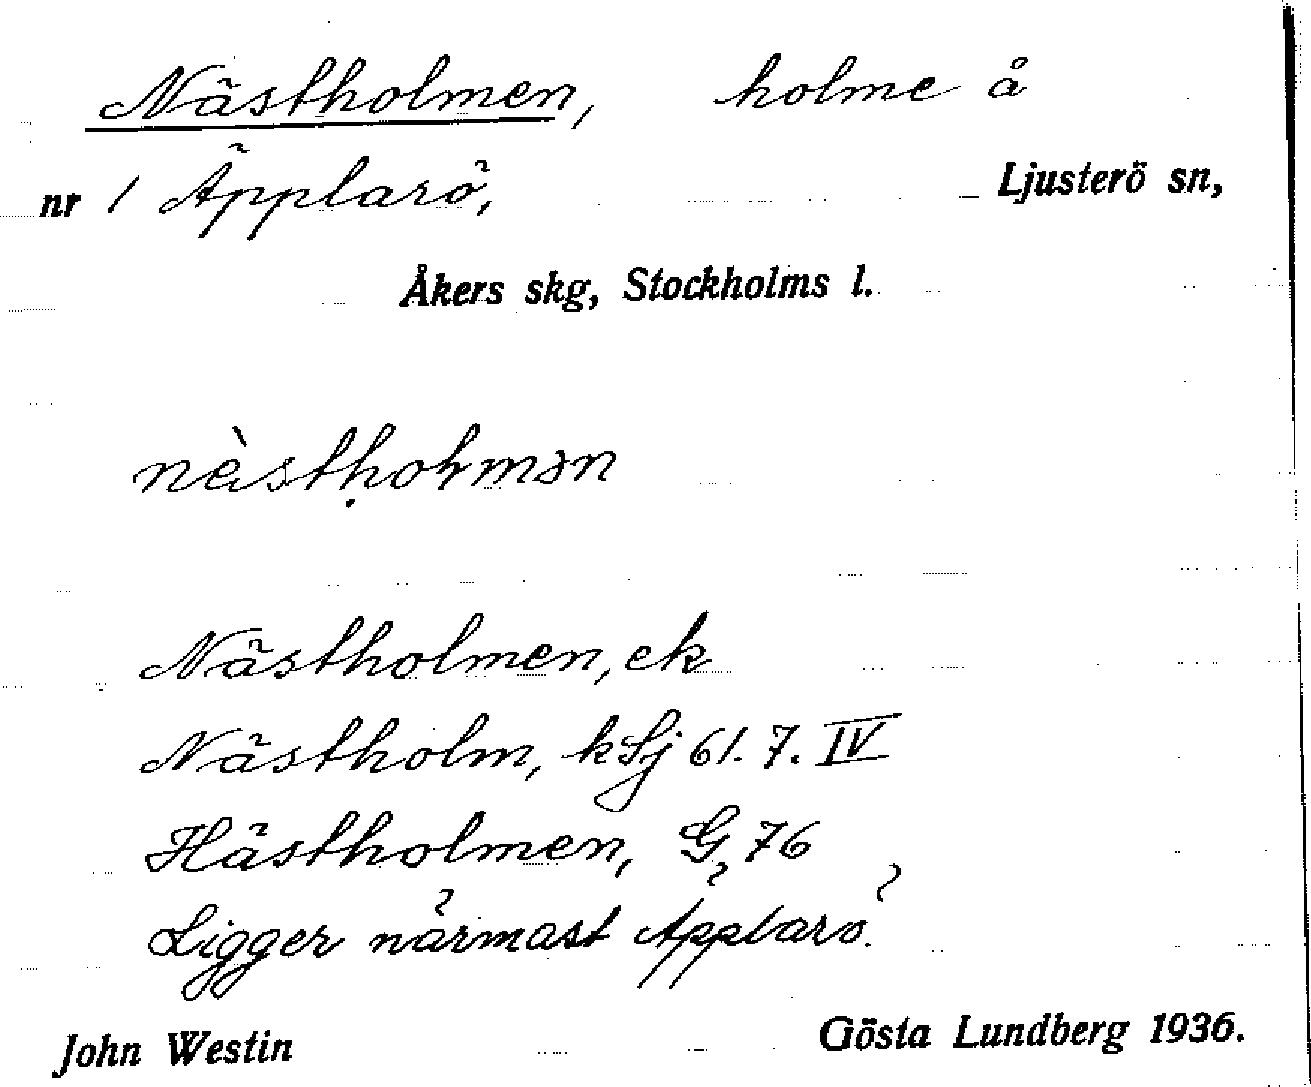 Nästholmen, holme å
nr 1 Äpplarö, Ljusterö sn,
Åkers skg, Stockholms l.
nὲstḥoɫmən
Nästholmen, ek
Nästholm, kSj 61. 7. IV
Hästholmen, G, 76
Ligger närmast Äpplarö.
John Westin Gösta Lundberg 1936.